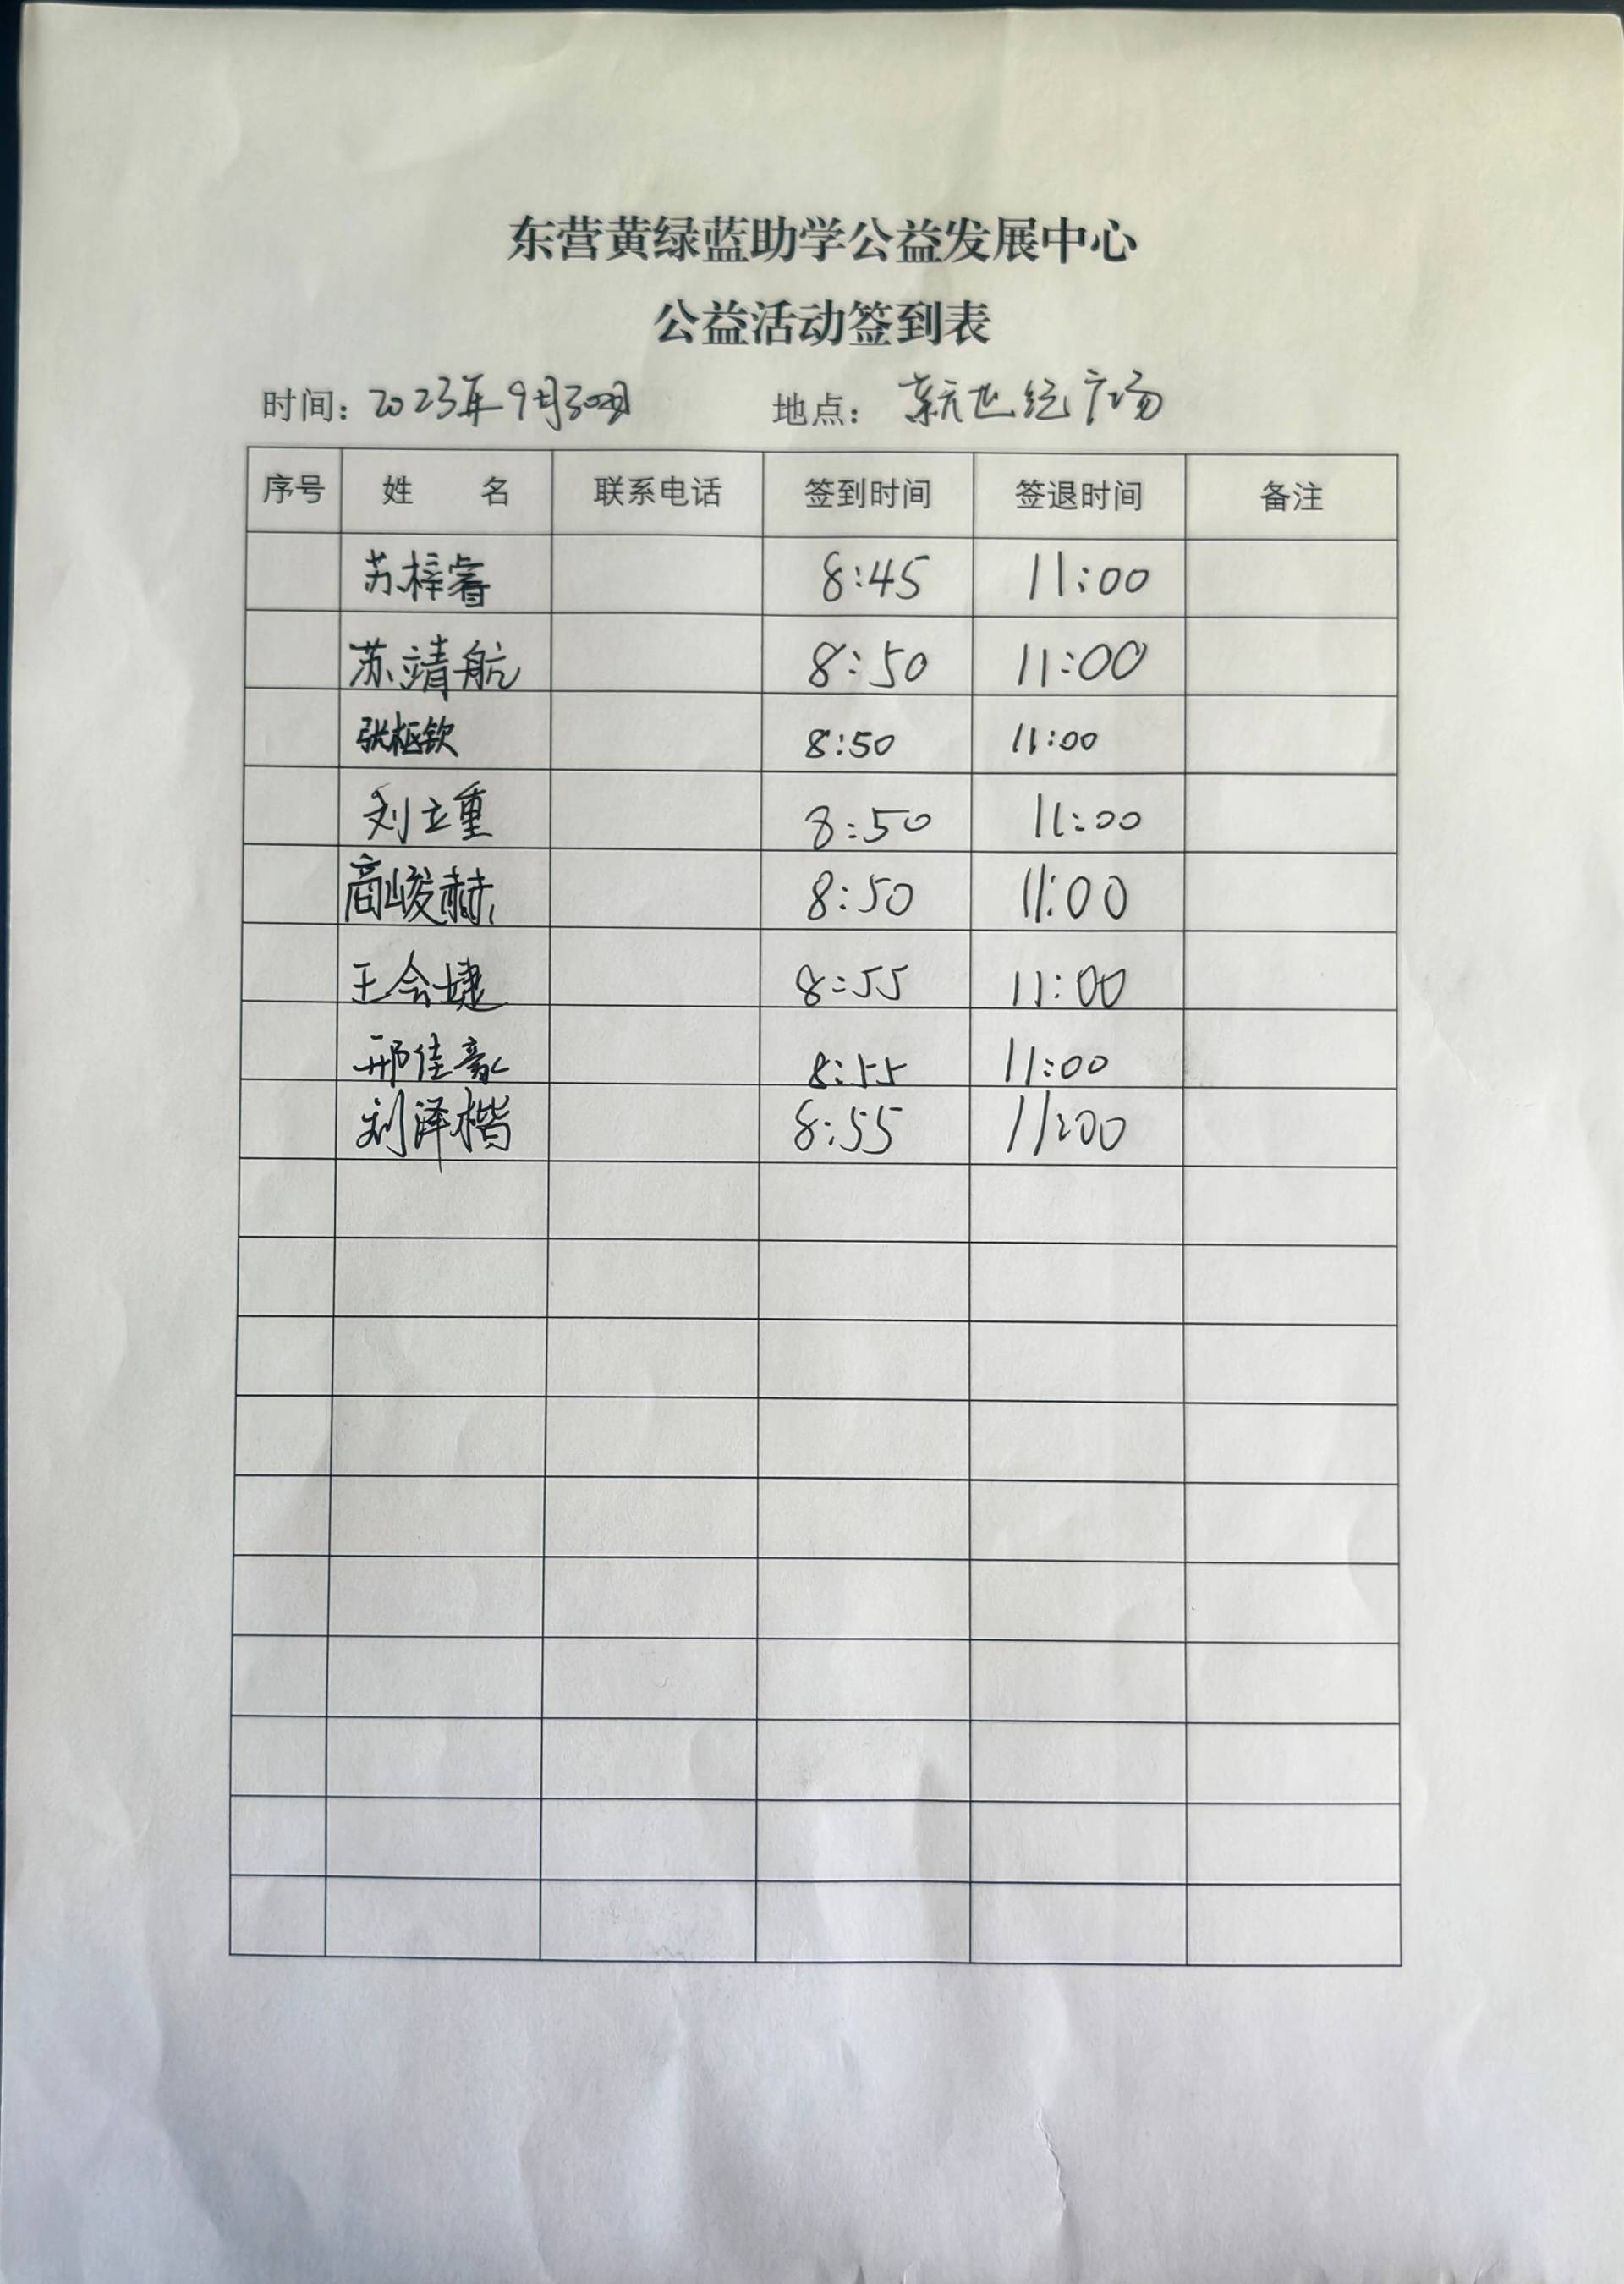 东营黄绿蓝助学公益发展中心
公益活动签到表
时间：2023年9月30日 地点：新世纪广场
序号 姓 名 联系电话 签到时间 签退时间 备注
苏梓睿 8:45 11:00
苏靖航 8:50 11:00
张枢钦 8:50 11:00
刘立重 8:50 11:00
高峻赫 8:50 11:00
王会婕 8:55 11:00
邢佳豪 8:55 11:00
刘泽楷 8:55 11:00